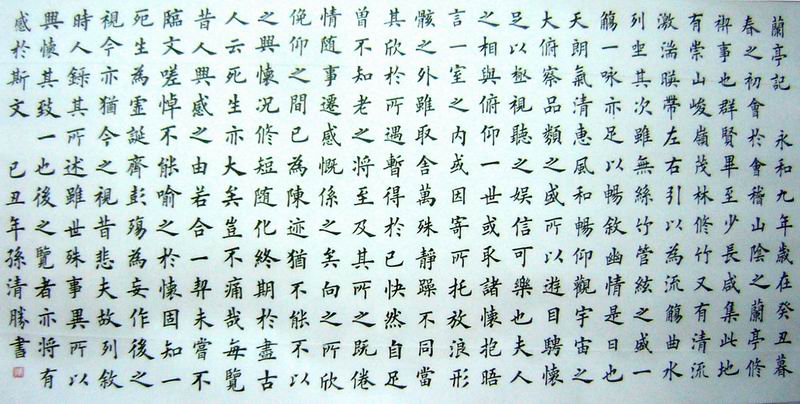 蘭亭記 永和九年歲在癸丑暮
春之初會於會稽山陰之蘭亭修
禊事也群賢畢至少長咸集此地
有崇山峻嶺茂林修竹又有清流
激湍暎帶左右引以為流觴曲水
列坐其次雖無絲竹管絃之盛一
觴一咏亦足以暢敘幽情是日也
天朗氣清惠風和暢仰觀宇宙之
大俯察品類之盛所以遊目騁懷
足以極視聽之娛信可樂也夫人
之相與俯仰一世或取諸懷抱晤
言一室之內或因寄所托放浪形
骸之外雖取舍萬殊靜躁不同當
其欣於所遇暫得於己快然自足
曾不知老之將至及其所之既倦
情隨事遷感慨係之矣向之所欣
俛仰之間已為陳迹猶不能不以
之興懷況修短隨化終期於盡古
人云死生亦大矣豈不痛哉每覽
昔人興感之由若合一契未嘗不
臨文嗟悼不能喻之於懷固知一
死生為虛誕齊彭殤為妄作後之
視今亦猶今之視昔悲夫故列敘
時人錄其所述雖世殊事異所以
興懷其致一也後之覽者亦將有
感於斯文 己丑年孫清勝書